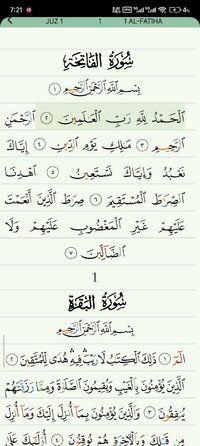 7:21
4%
JUZ 1 1 1 AL-FATIHA
سُورَةُ الفَاتِحَةِ
بِسْمِ اللَّهِ الرَّحْمَٰنِ الرَّحِيمِ ١
الْحَمْدُ لِلَّهِ رَبِّ الْعَالَمِينَ ٢ الرَّحْمَٰنِ
الرَّحِيمِ ٣ مَالِكِ يَوْمِ الدِّينِ ٤ إِيَّاكَ
نَعْبُدُ وَإِيَّاكَ نَسْتَعِينُ ٥ اهْدِنَا
الصِّرَاطَ الْمُسْتَقِيمَ ٦ صِرَاطَ الَّذِينَ أَنْعَمْتَ
عَلَيْهِمْ غَيْرِ الْمَغْضُوبِ عَلَيْهِمْ وَلَا
الضَّالِّينَ ٧
1
سُورَةُ البَقَرَةِ
بِسْمِ اللَّهِ الرَّحْمَٰنِ الرَّحِيمِ
الٓمٓ ١ ذَٰلِكَ الْكِتَابُ لَا رَيْبَ فِيهِ هُدًى لِلْمُتَّقِينَ ٢
الَّذِينَ يُؤْمِنُونَ بِالْغَيْبِ وَيُقِيمُونَ الصَّلَاةَ وَمِمَّا رَزَقْنَاهُمْ
يُنْفِقُونَ ٣ وَالَّذِينَ يُؤْمِنُونَ بِمَا أُنْزِلَ إِلَيْكَ وَمَا أُنْزِلَ
مِنْ قَبْلِكَ وَبِالْآخِرَةِ هُمْ يُوقِنُونَ ٤